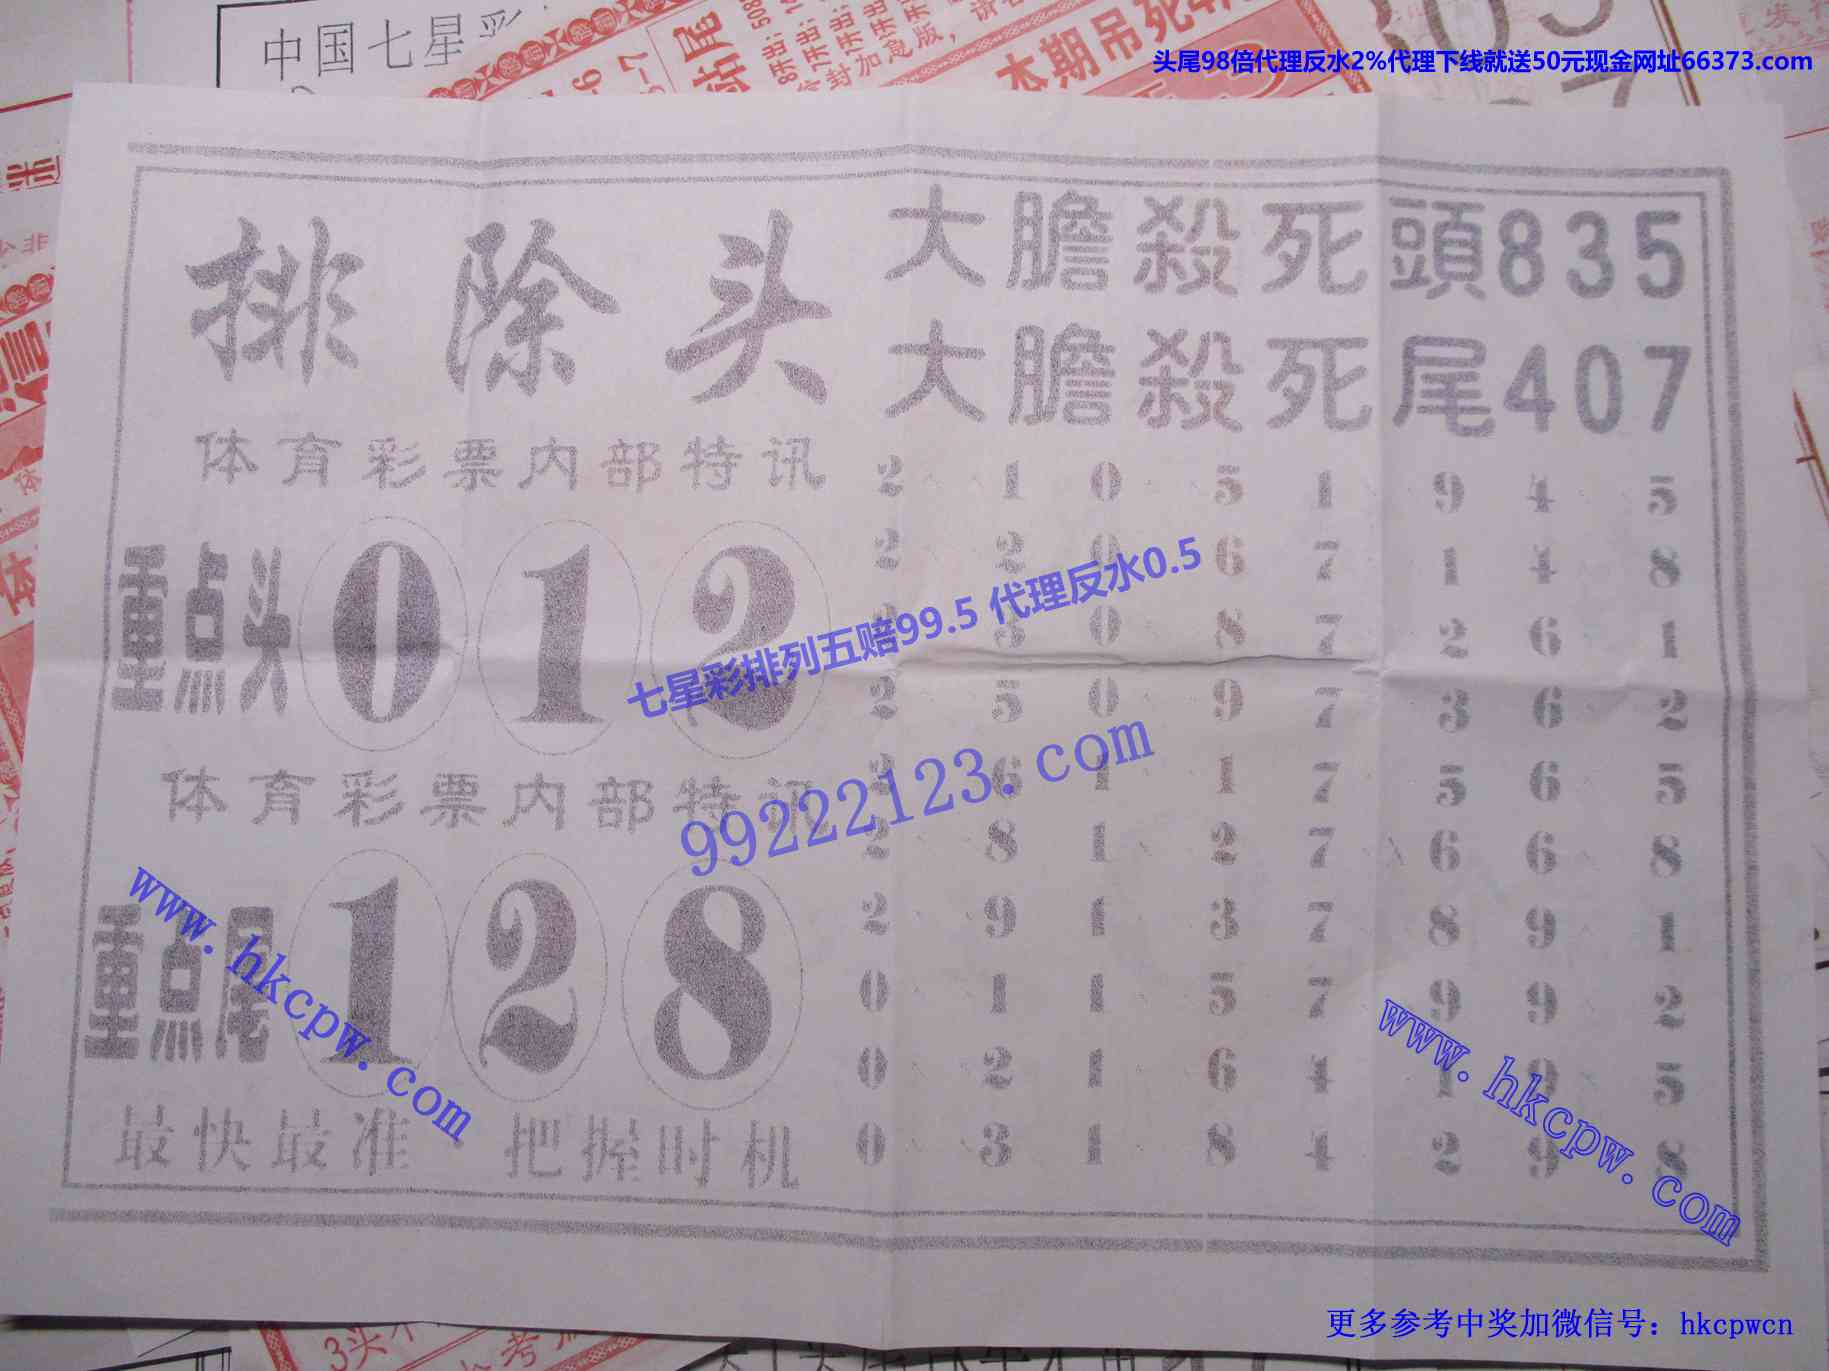 中国七星彩
头尾98倍代理反水2%代理下线就送50元现金网址66373.com
本期吊死
排除头
大膽殺死頭835
大膽殺死尾407
体育彩票内部特讯
重点头 0 1 2
体育彩票内部特讯
重点尾 1 2 8
最快最准 把握时机
2 1 0 5 1 9 4 5
2 2 0 6 7 1 4 8
2 3 0 8 7 2 6 1
2 5 0 9 7 3 6 2
2 6 1 1 7 5 6 5
2 8 1 2 7 6 6 8
2 9 1 3 7 8 9 1
0 1 1 5 7 9 9 2
0 2 1 6 4 1 9 5
0 3 1 8 4 2 9 8
七星彩排列五赔99.5 代理反水0.5
99222123.com
www.hkcpw.com
www.hkcpw.com
更多参考中奖加微信号：hkcpwcn